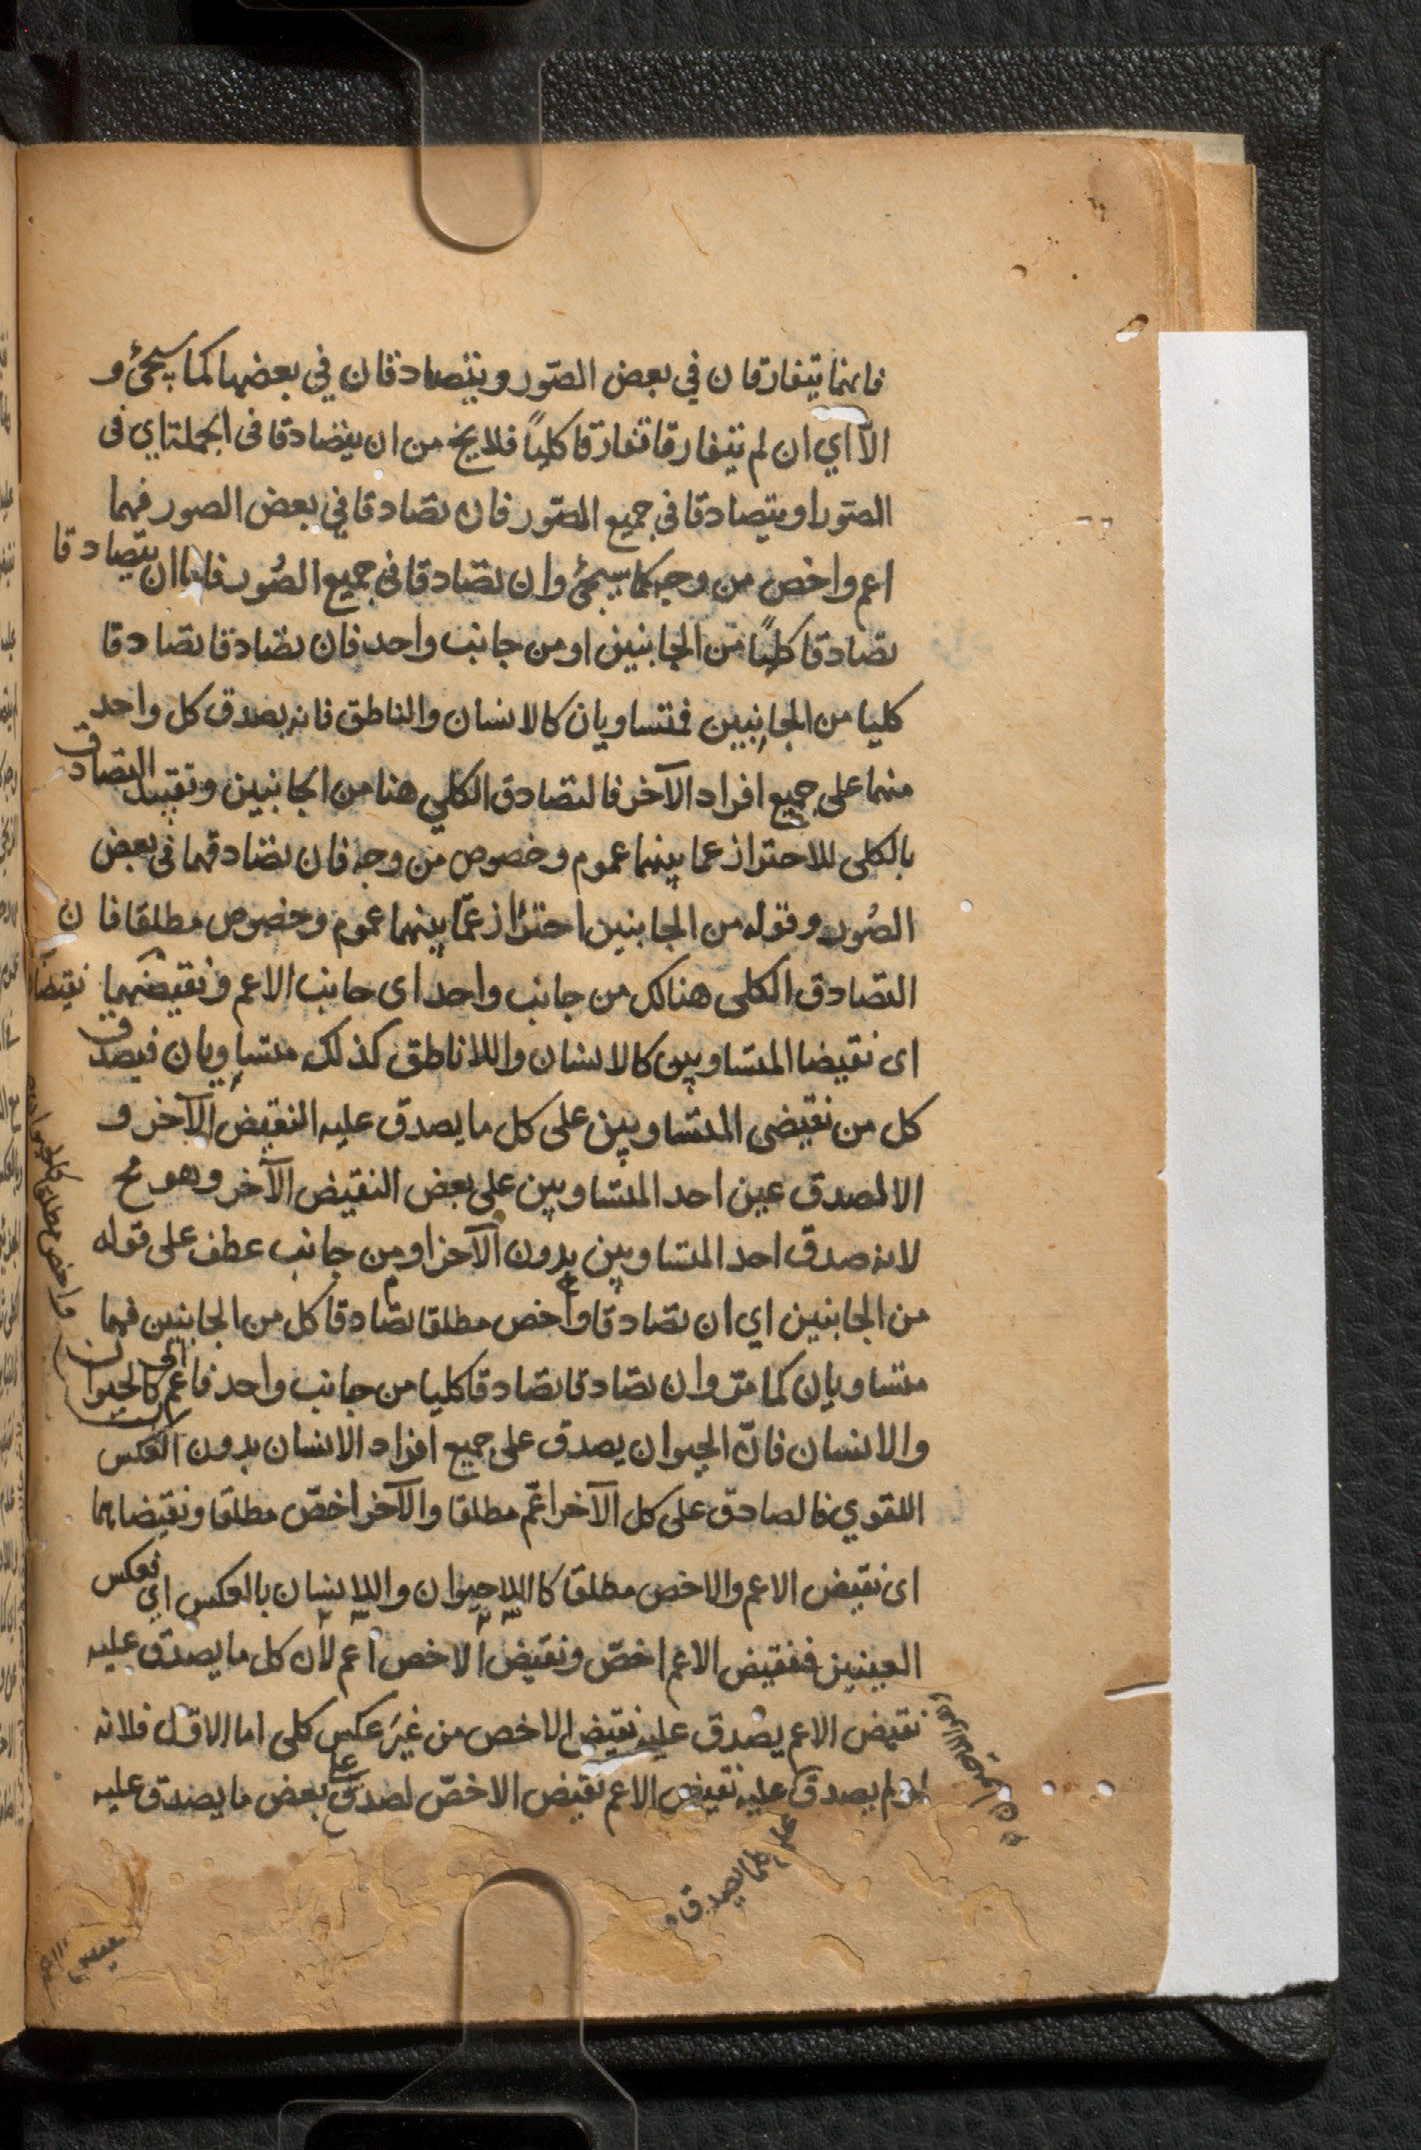 فانهما يتفارقان في بعض الصّور ويتصادقان في بعضها كما سيجئ و
الّا اي ان لم يتفارقا تفارقا كليًا فلا يخ من ان يتصادقا في الجملة اي في
الصّور او يتصادقا في جميع الصّور فان تصادقا في بعض الصور فهما
اعم واخص من وجه كما سيجئ وان تصادقا في جميع الصُور فاما ان يتصادقا
تصادقا كليًا من الجانبين او من جانب واحد فان تصادقا تصادقا
كليا من الجانبين فمتساويان كالانسان والناطق فانه يصدق كل واحد
منهما على جميع افراد الآخر فالتصادق الكلي هنا من الجانبين وتقييد التصادق
بالكلى للاحتراز عما بينهما عموم وخصوص من وجه فان تصادقهما في بعض
الصُور وقوله من الجانبين احتراز عمّا بينهما عموم وخصوص مطلقا فان
التصادق الكلى هنالك من جانب واحد اى جانب الاعم ونقيضهما نقيضا
اى نقيضا المتساويين كالانسان واللاناطق كذلك متساويان فيصدق
كل من نقيضى المتساويين على كل ما يصدق عليه النقيض الآخر و
الا لصدق عين احد المتساويين على بعض النقيض الآخر وهو مح
لانه صدق احد المتساويين بدون الآخر او من جانب عطف على قوله
من الجانبين اي ان تصادقا واخص مطلقا تصادقا كل من الجانبين فهما
متساويان كما مرّ وان تصادقا تصادقا كليا من جانب واحد فاعم كالحيوان
والانسان فانّ الحيوان يصدق على جميع افراد الانسان بدون العكس
اللغوي فالصادق على كل الآخر اعّم مطلقا والآخر اخصّ مطلقا ونقيضاهما
اى نقيض الاعم والاخص مطلقا كاللاحيوان واللاانسان بالعكس اي بعكس
العينين فنقيض الاعم اخصّ ونقيض الاخص اعم لان كل ما يصدق عليه
نقيض الاعم يصدق عليه نقيض الاخص من غير عكس كلى اما الاول فلانه
لو لم يصدق عليه نقيض الاعم نقيض الاخصّ لصدق على بعض ما يصدق عليه
على كل ما يصدق